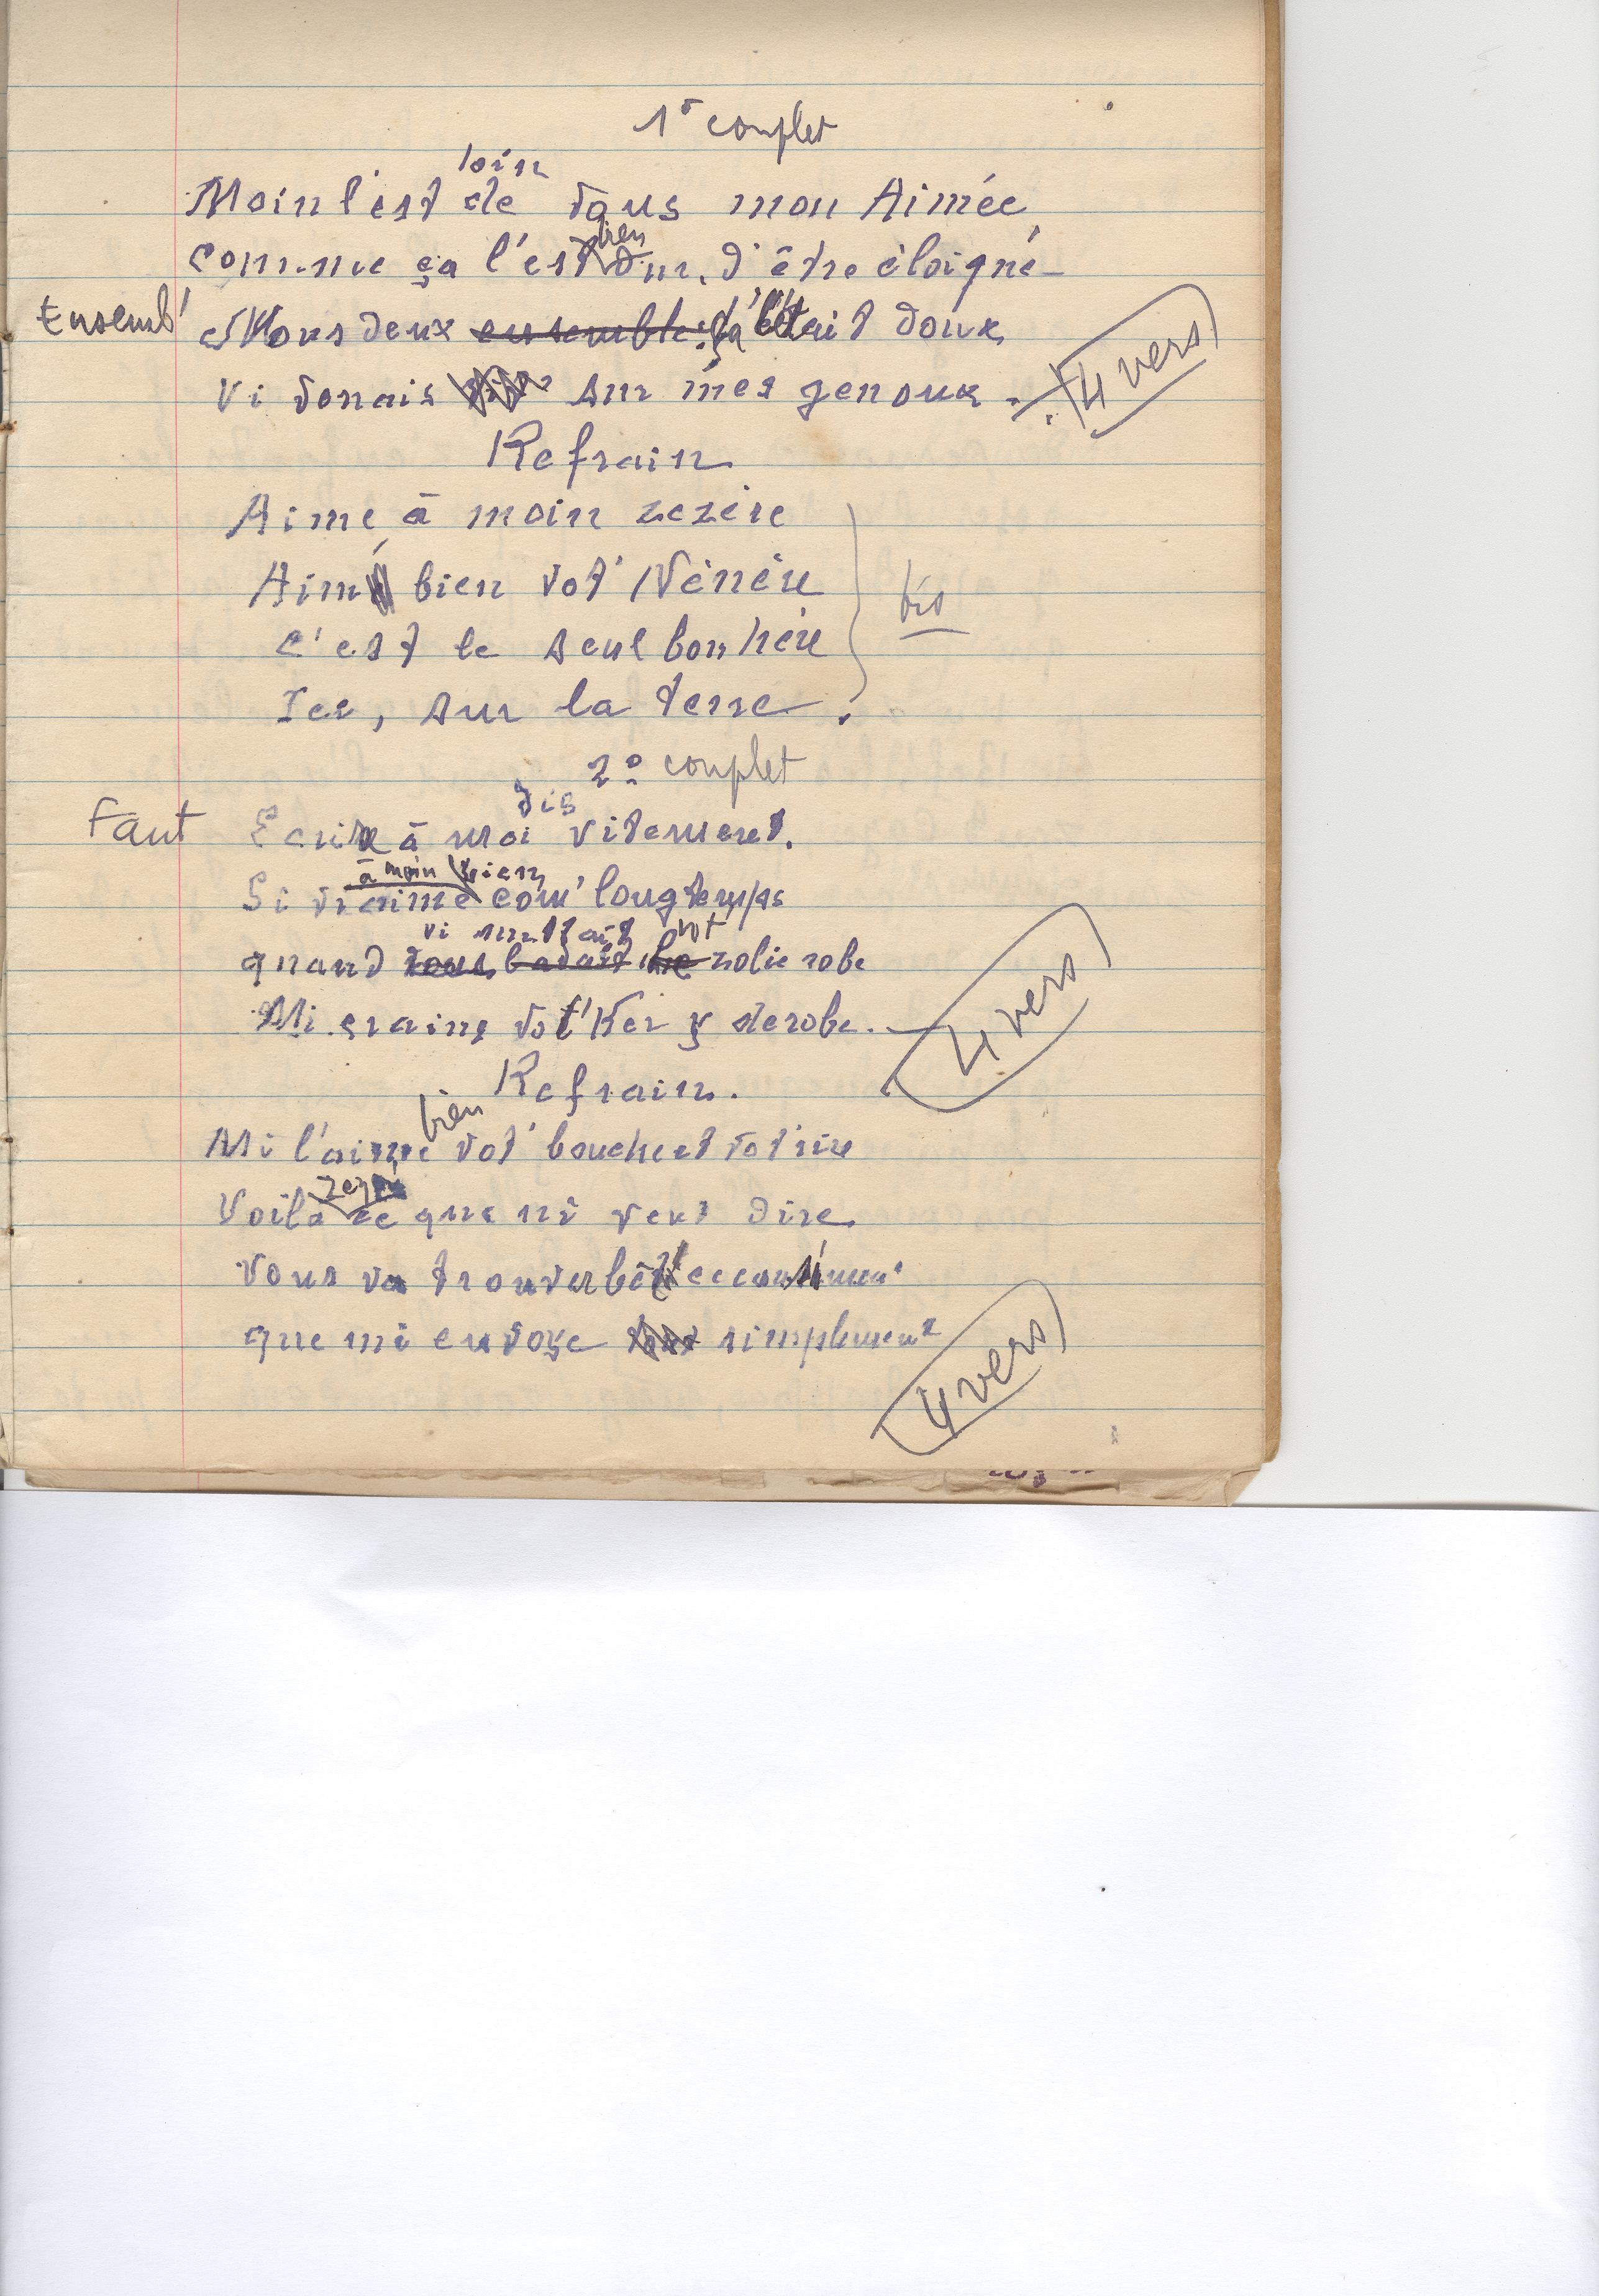 1º couplet
loin
Moin l'est de vous mon Aimée
bien
comme ça l'est dur, d'être éloigné
Ensemb' Nous deux ensemble: ça l'était doux
Vi venais sur mes genoux. (4 vers)
Refrain
Aime à moin zézère
Aimé bien vot' Nénère
C'est le seul bonhère
Ici, sur la terre. bis
2º couplet
dis
Faut Ecrire à moi vitement.
à moin bien
Si vi aime com' longtemps
vi mettait vot
quand vous le zolie robe
Mi craing vot' Ker y dérobe. (4 vers)
Refrain.
bien
Mi l'aime vot' bouche et vot' rire
Voilà ce que mi veut dire
Vous va trouver bét'
que mi envoye simplement (4 vers)